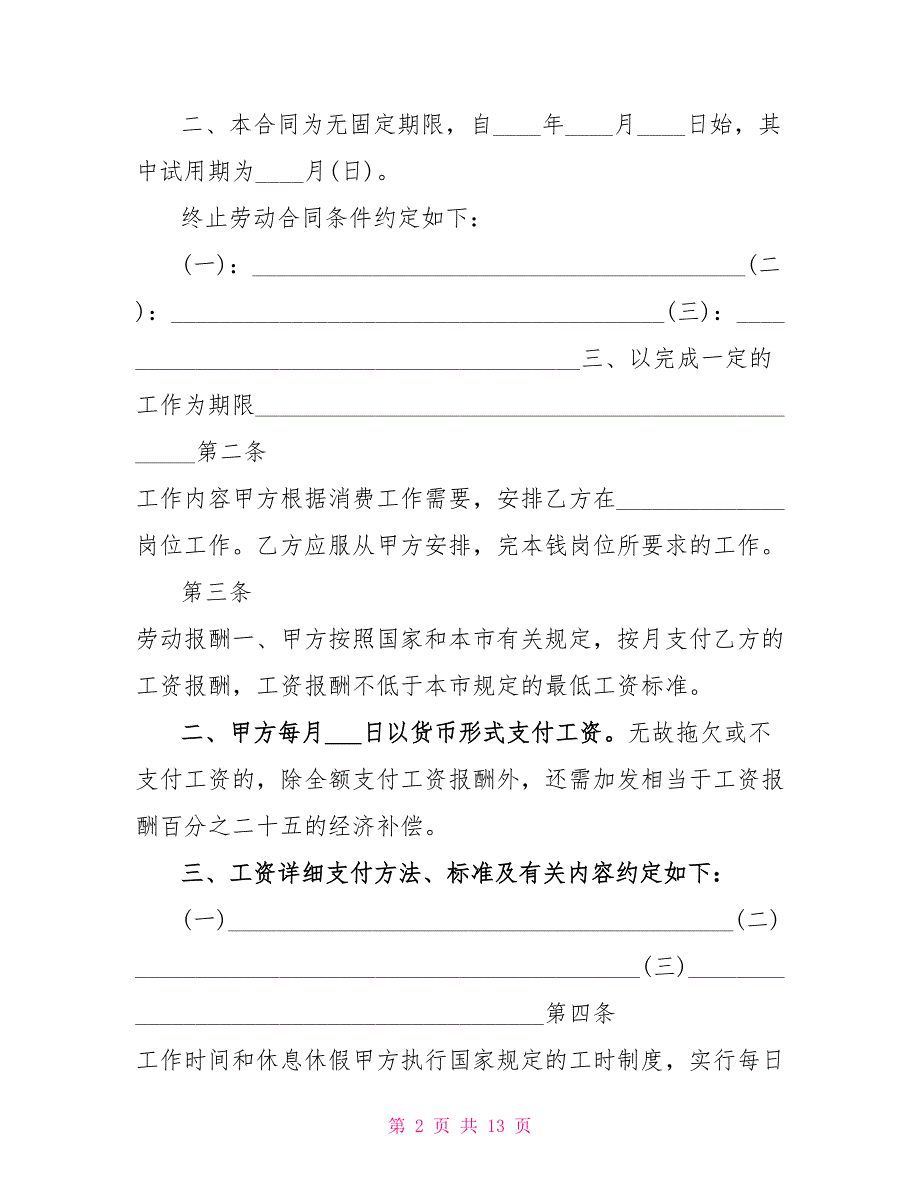 二、本合同为无固定期限，自____年____月____日始，其
中试用期为____月(日)。
终止劳动合同条件约定如下：
(一)：_________________________________________(二
)：_________________________________________(三)：____
_____________________________________三、以完成一定的
工作为期限____________________________________________
_____第二条
工作内容甲方根据消费工作需要，安排乙方在______________
岗位工作。乙方应服从甲方安排，完本钱岗位所要求的工作。
第三条
劳动报酬一、甲方按照国家和本市有关规定，按月支付乙方的
工资报酬，工资报酬不低于本市规定的最低工资标准。
二、甲方每月___日以货币形式支付工资。无故拖欠或不
支付工资的，除全额支付工资报酬外，还需加发相当于工资报
酬百分之二十五的经济补偿。
三、工资详细支付方法、标准及有关内容约定如下：
(一)__________________________________________(二)
__________________________________________(三)________
__________________________________第四条
工作时间和休息休假甲方执行国家规定的工时制度，实行每日
第 2 页 共 13 页